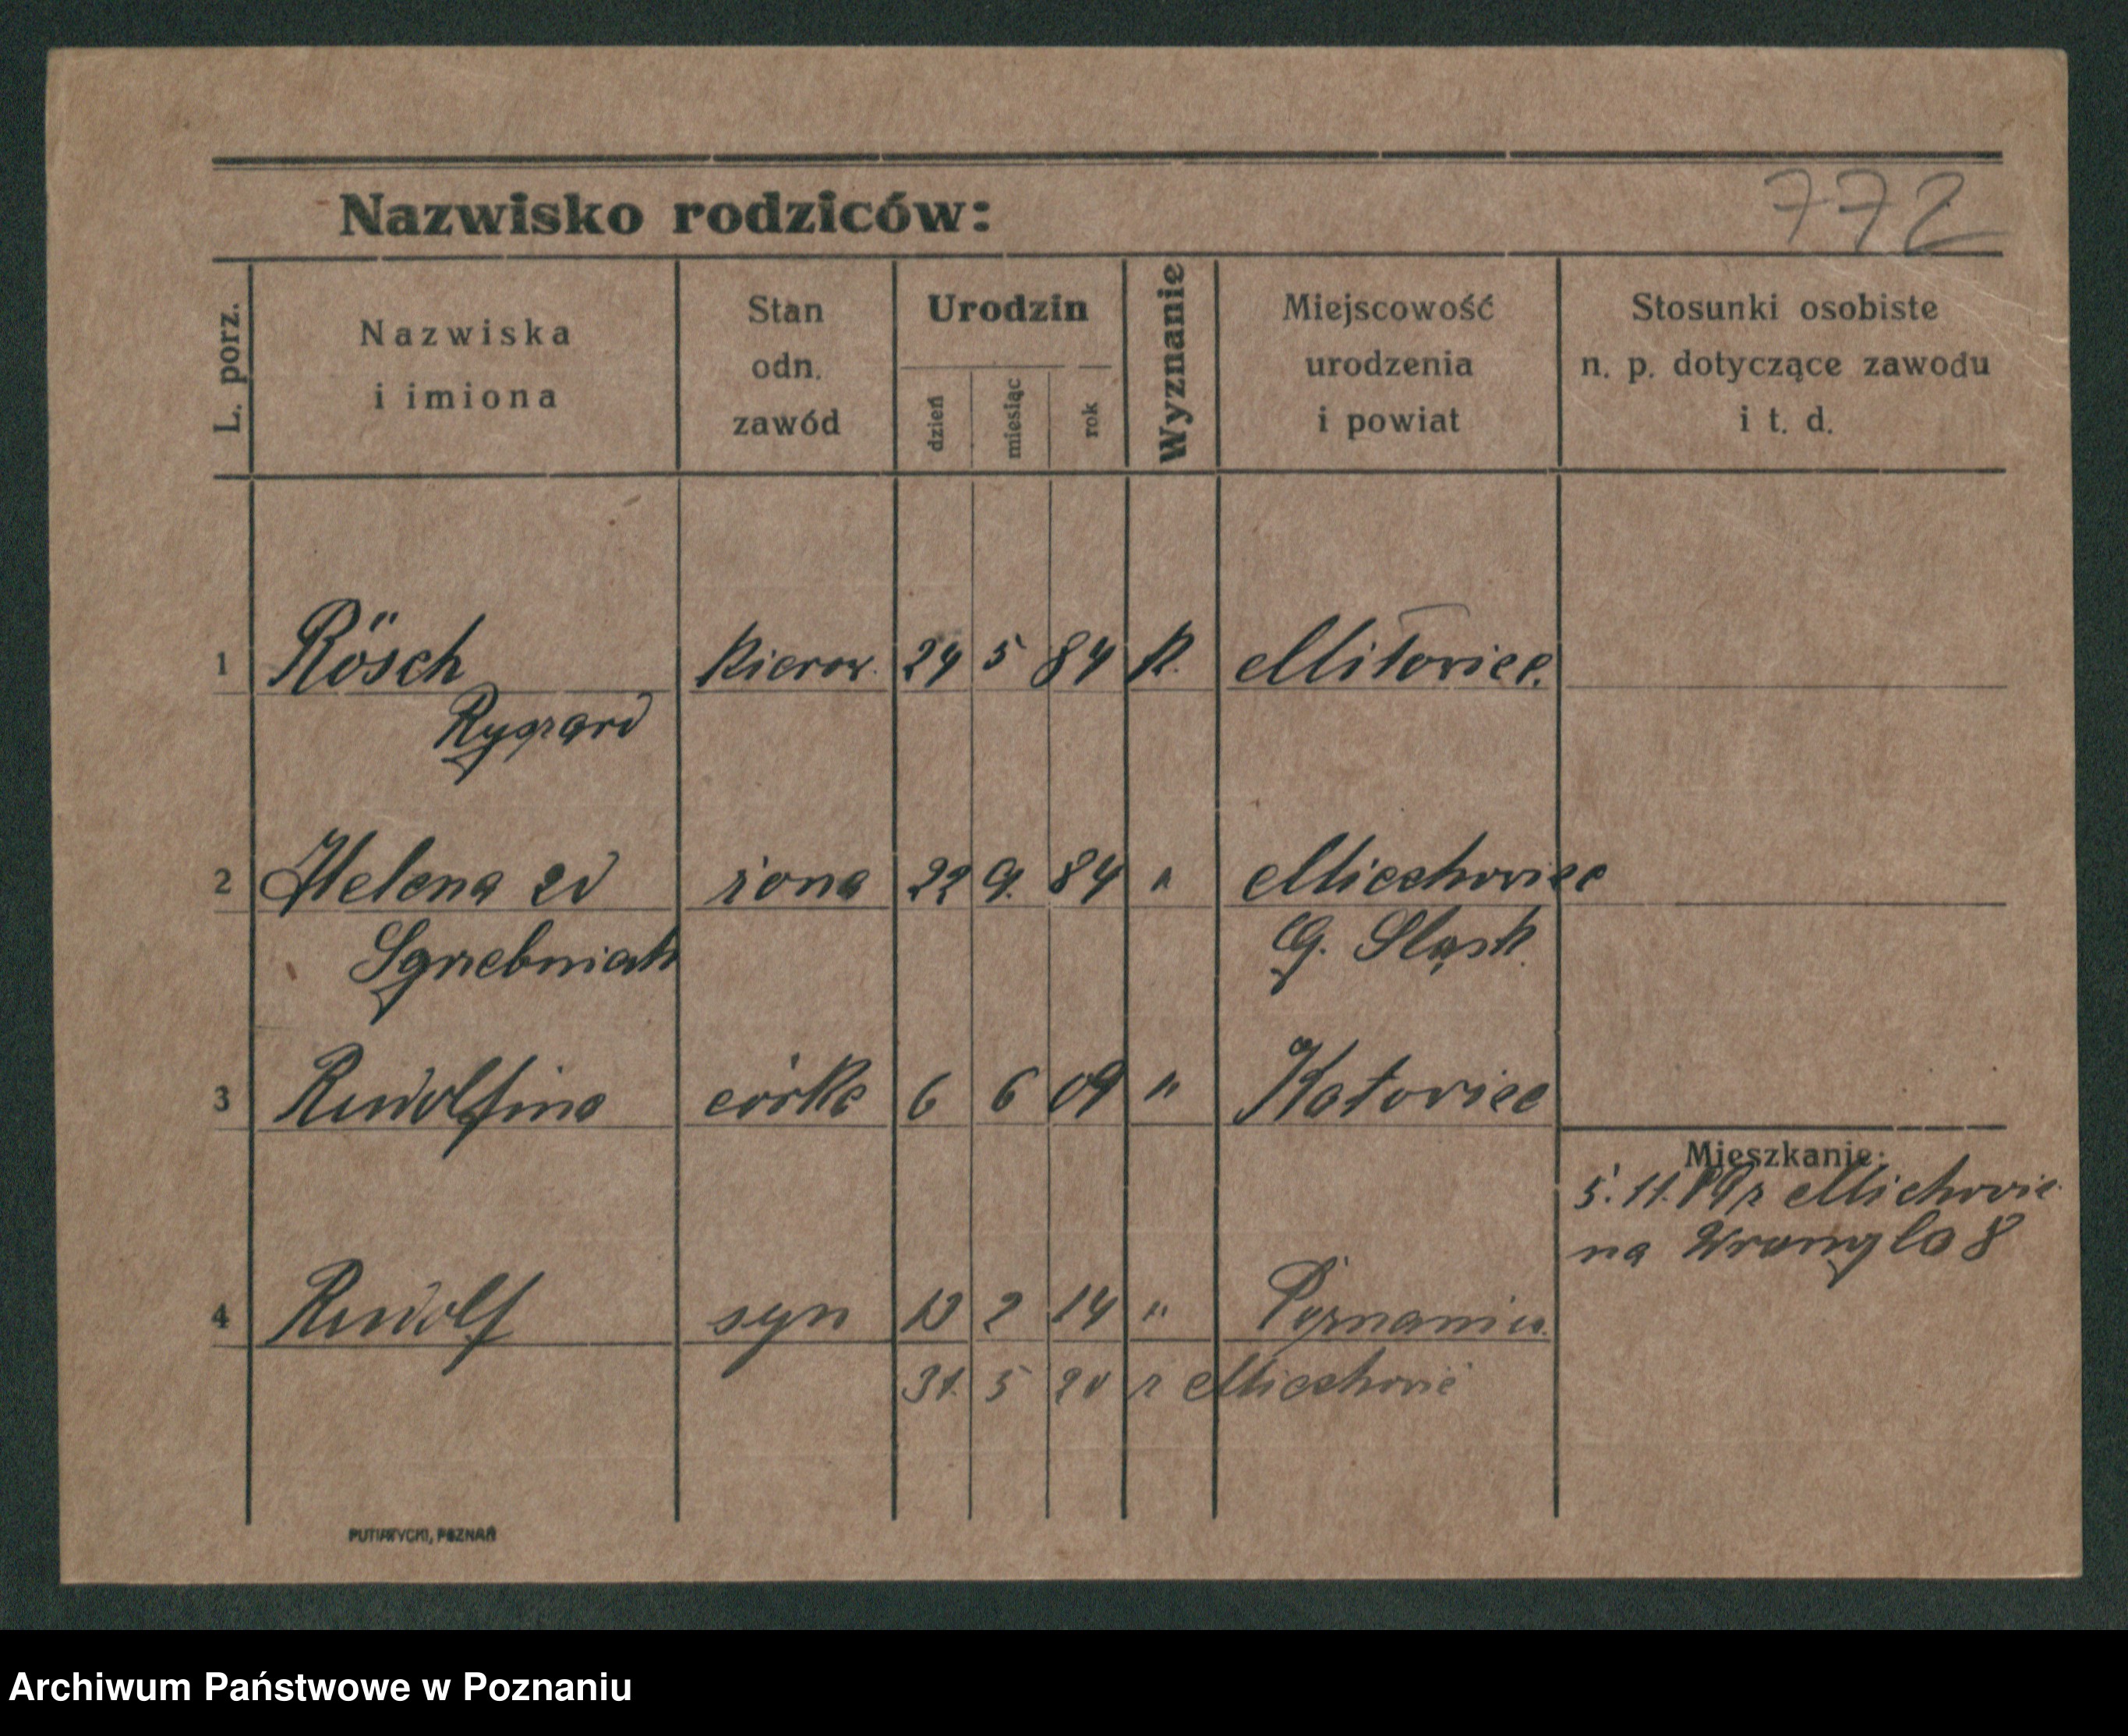 Nazwisko rodziców:
772
L. porz.
Nazwiska
i imiona
Stan
odn.
zawód
Urodzin
dzień
miesiąc
rok
Wyznanie
Miejscowość
urodzenia
i powiat
Stosunki osobiste
n. p. dotyczące zawodu
i t. d.
1 Rösch kierow. 24 5 84 k.
Ryszard
2 Helena żona 22 9. 84 " Miechowice
G. Śląsk.
3 Rudolfina córka 6 6 09 " Katowice
Mieszkanie:
5. 11. 19 z Miechowic
na Wrangla 8
4 Rudolf syn 13 2 14 "
31. 5 20 z Miechowic
PUTIATYCKI, POZNAŃ
Archiwum Państwowe w Poznaniu